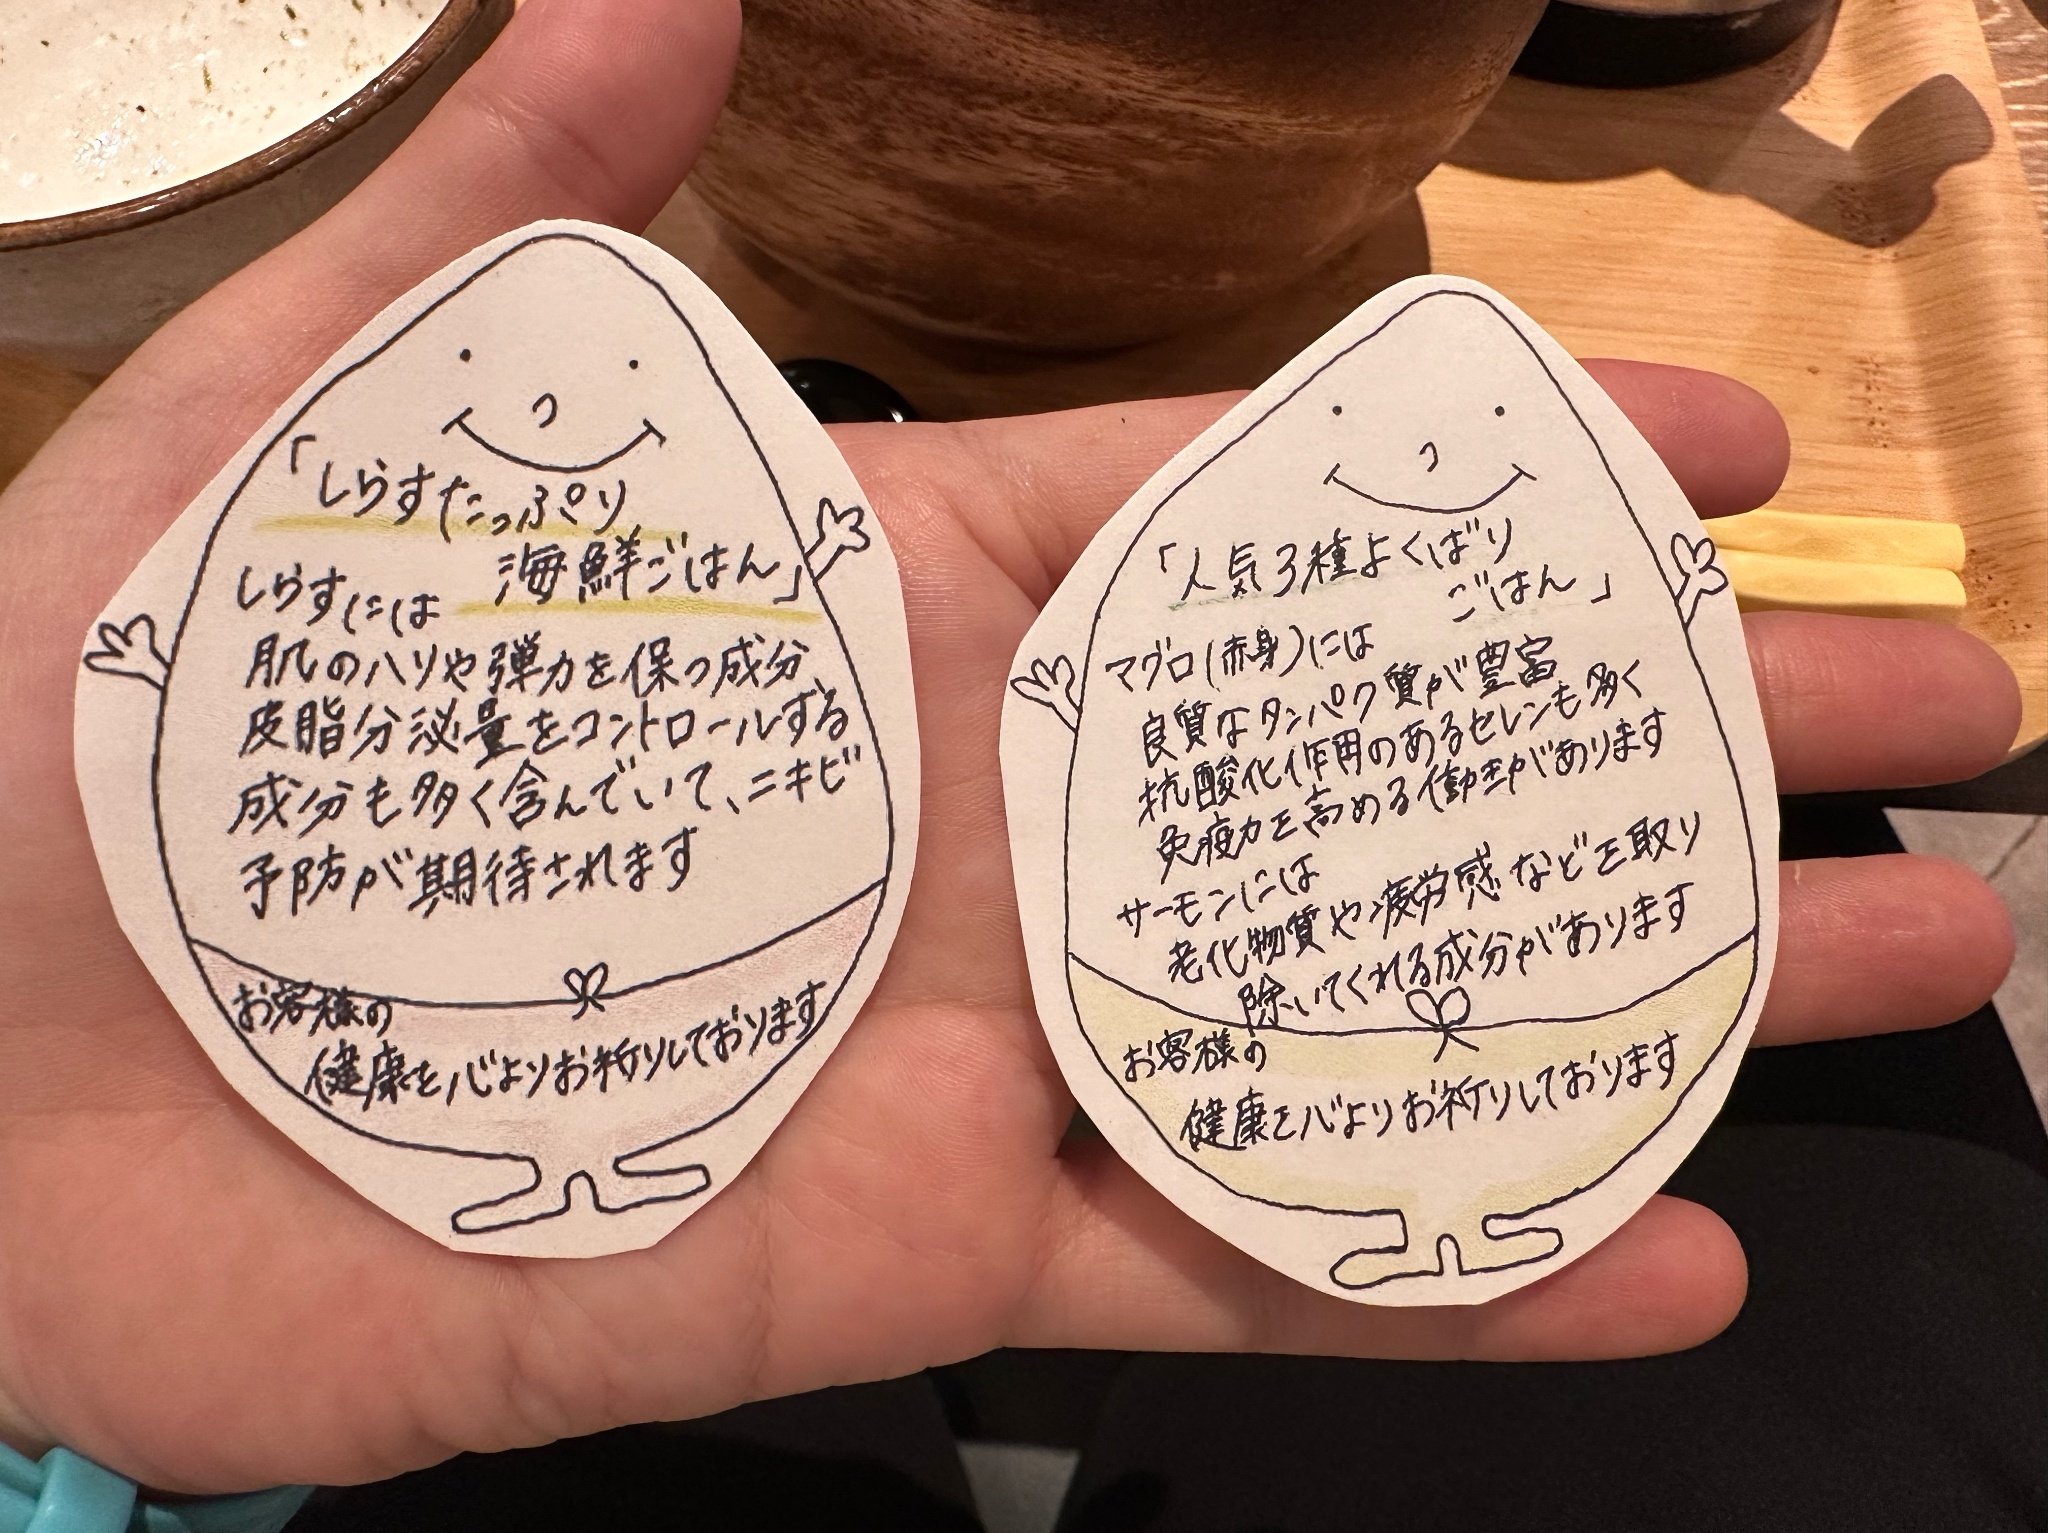 「しらすたっぷり
海鮮ごはん」
しらすには
肌のハリや弾力を保つ成分、
皮脂分泌量をコントロールする
成分も多く含んでいて、ニキビ
予防が期待されます
お客様の
健康を心よりお祈りしております
「人気3種よくばり
ごはん」
マグロ(赤身)には
良質なタンパク質が豊富
抗酸化作用のあるセレンも多く
免疫力を高める働きがあります
サーモンには
老化物質や疲労感などを取り
除いてくれる成分があります
お客様の
健康を心よりお祈りしております